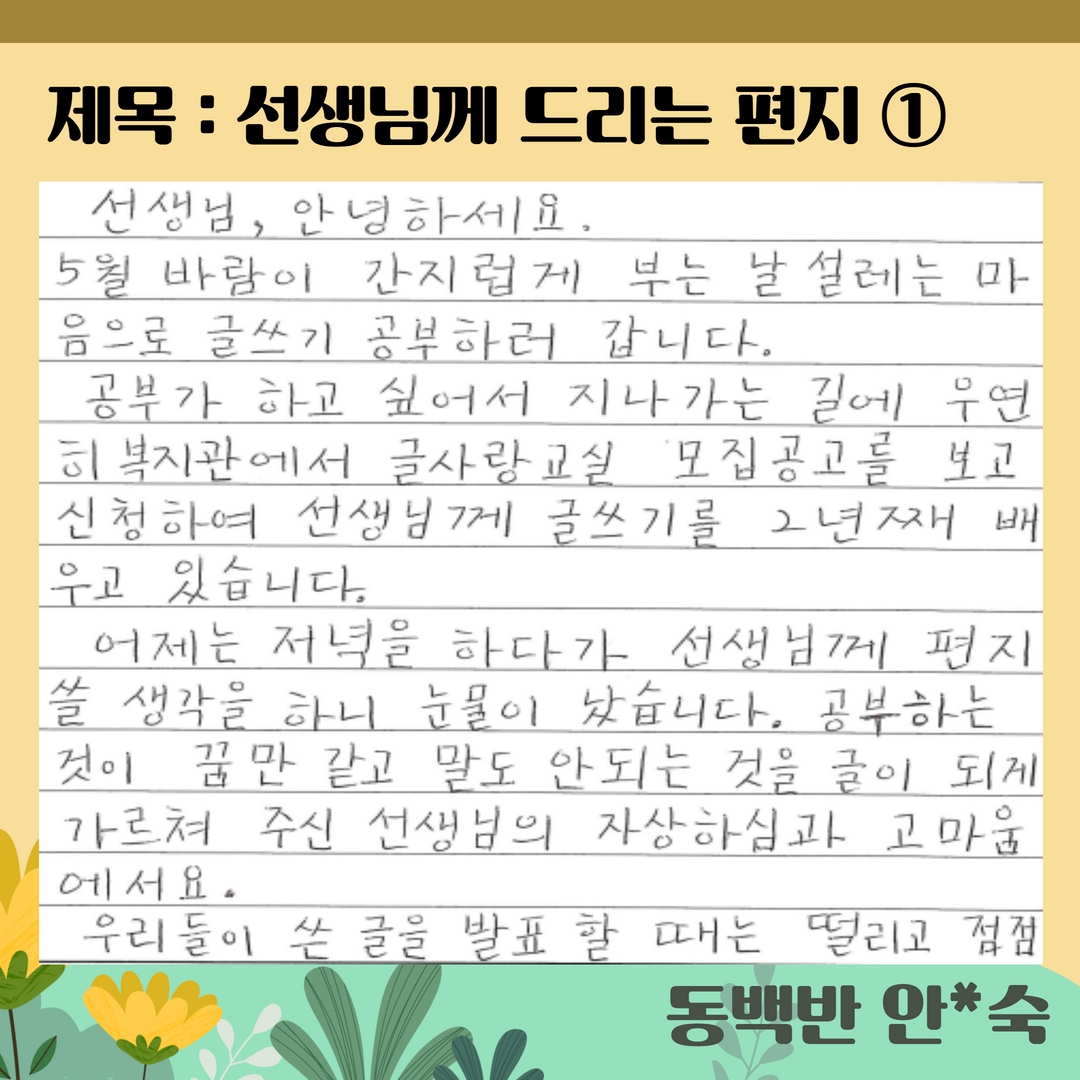 제목 : 선생님께 드리는 편지 ①
선생님, 안녕하세요.
5월 바람이 간지럽게 부는 날 설레는 마
음으로 글쓰기 공부하러 갑니다.
공부가 하고 싶어서 지나가는 길에 우연
히 복지관에서 글사랑교실 모집공고를 보고
신청하여 선생님께 글쓰기를 2년째 배
우고 있습니다.
어제는 저녁을 하다가 선생님께 편지
쓸 생각을 하니 눈물이 났습니다. 공부하는
것이 꿈만 같고 말도 안되는 것을 글이 되게
가르쳐 주신 선생님의 자상하심과 고마움
에서요.
우리들이 쓴 글을 발표 할 때는 떨리고 점점
동백반 안*숙